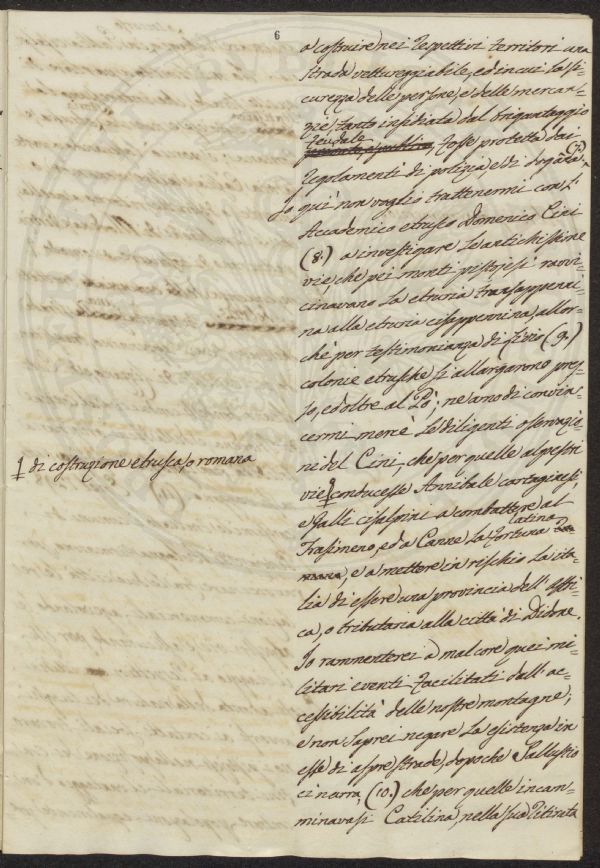 6
a costruire nei respettivi territori una
strada vettureggiabile, ed in cui la si=
curezza delle persone, e delle mercan=
zie, tanto insidiata dal brigantaggio
feudale
fosse protetta dai
regolamenti di polizia, e di dogana (7.)
Io quì non voglio trattenermi con l'
Accademico etrusco Domenico Cini
(8.) a investigare le antichissime
vie, che pei monti pistojesi ravvi=
cinavano la etruria transappenni=
na alla etruria cisappennina, allor=
chè per testimonianza di Livio (9.)
colonie etrusche si allargarono pres=
so, ed oltre al Pò; ne ano di convin=
cermi mercè le diligenti osservazio=
ni del Cini, che per quelle alpestri
vie conducesse Annibale cartaginesi,
di costruzione etrusca, o romana
e Galli cisalpini a combattere al
Trasimeno, ed a Canne la fortuna
latina
, e a mettere in rischio la ita=
lia di essere una provincia dell'Affri=
ca, o tributaria alla città di Didone.
Io rammenterei a mal core quei mi=
litari eventi facilitati dall'ac=
cessibilità delle nostre montagne;
e non saprei negare la esistenza in
esse di aspre strade, dopochè Sallustio
ci narra, (10.) che per quelle incam=
minavasi Catilina, nella sua ritirata